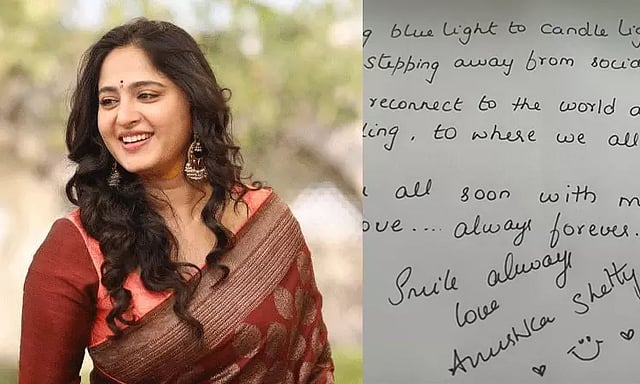 blue light to candle
stepping away from
reconnect to the world
to where we all
all soon with
.... always forever.
Smile always
love
Anushka Shetty